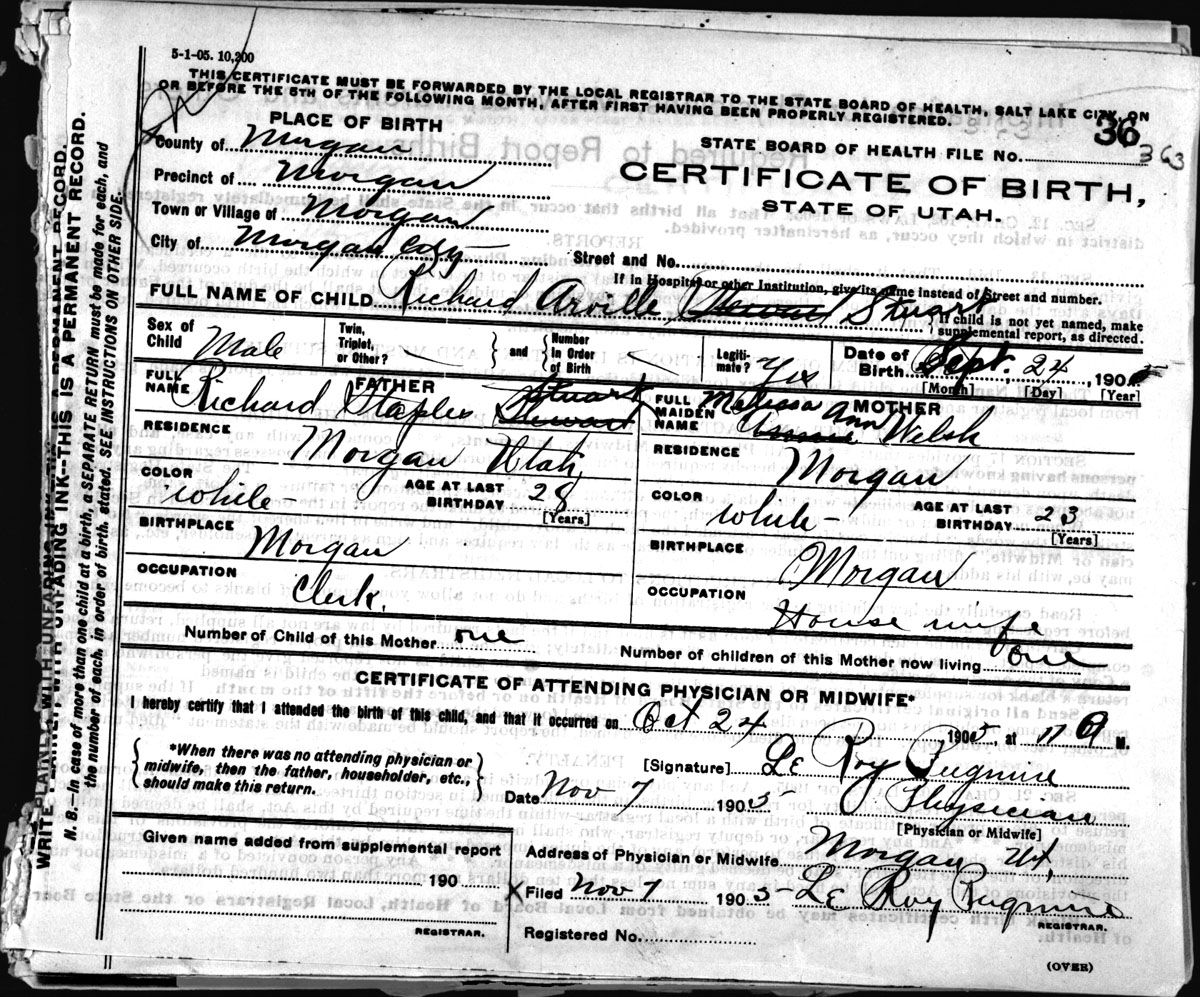 5-1-05. 10,200
THIS CERTIFICATE MUST BE FORWARDED BY THE LOCAL REGISTRAR TO THE STATE BOARD OF HEALTH, SALT LAKE CITY, ON
OR BEFORE THE 5TH OF THE FOLLOWING MONTH, AFTER FIRST HAVING BEEN PROPERLY REGISTERED.
PLACE OF BIRTH
County of Morgan
Precinct of Morgan
Town or Village of Morgan
City of Morgan City
STATE BOARD OF HEALTH FILE No. 36 363
CERTIFICATE OF BIRTH,
STATE OF UTAH.
Street and No.
If in Hospital or other Institution, give its name instead of Street and number.
FULL NAME OF CHILD Richard Arville, Stewart Stuart
{ If child is not yet named, make
supplemental report, as directed.
Sex of Child Male
Twin, Triplet, or Other?
and
Number in Order of Birth
Legiti- mate? Yes
Date of Birth Sept. 24, 1905
[Month] [Day] [Year]
FATHER
FULL NAME Richard Staples Stewart Stuart
RESIDENCE Morgan Utah
COLOR White
AGE AT LAST BIRTHDAY 28
[Years]
BIRTHPLACE Morgan
OCCUPATION Clerk.
MOTHER
FULL MAIDEN NAME Melissa Ann Welsh
RESIDENCE Morgan
COLOR White
AGE AT LAST BIRTHDAY 23
[Years]
BIRTHPLACE Morgan
OCCUPATION House wife
Number of Child of this Mother one
Number of children of this Mother now living one
CERTIFICATE OF ATTENDING PHYSICIAN OR MIDWIFE*
I hereby certify that I attended the birth of this child, and that it occurred on Oct 24 1905 at 11 a M.
{ *When there was no attending physician or
midwife, then the father, householder, etc.,
should make this return. }
[Signature] Le Roy Pugmire
Date Nov 7 1905 Physician
[Physician or Midwife]
Given name added from supplemental report
190
REGISTRAR.
Address of Physician or Midwife Morgan Ut,
X Filed Nov 7 1905 Le Roy Pugmire
REGISTRAR.
Registered No.
(OVER)
WRITE PLAINLY WITH UNFADING INK--THIS IS A PERMANENT RECORD.
N. B.--In case of more than one child at a birth, a SEPARATE RETURN must be made for each, and
the number of each, in order of birth, stated. SEE INSTRUCTIONS ON OTHER SIDE.